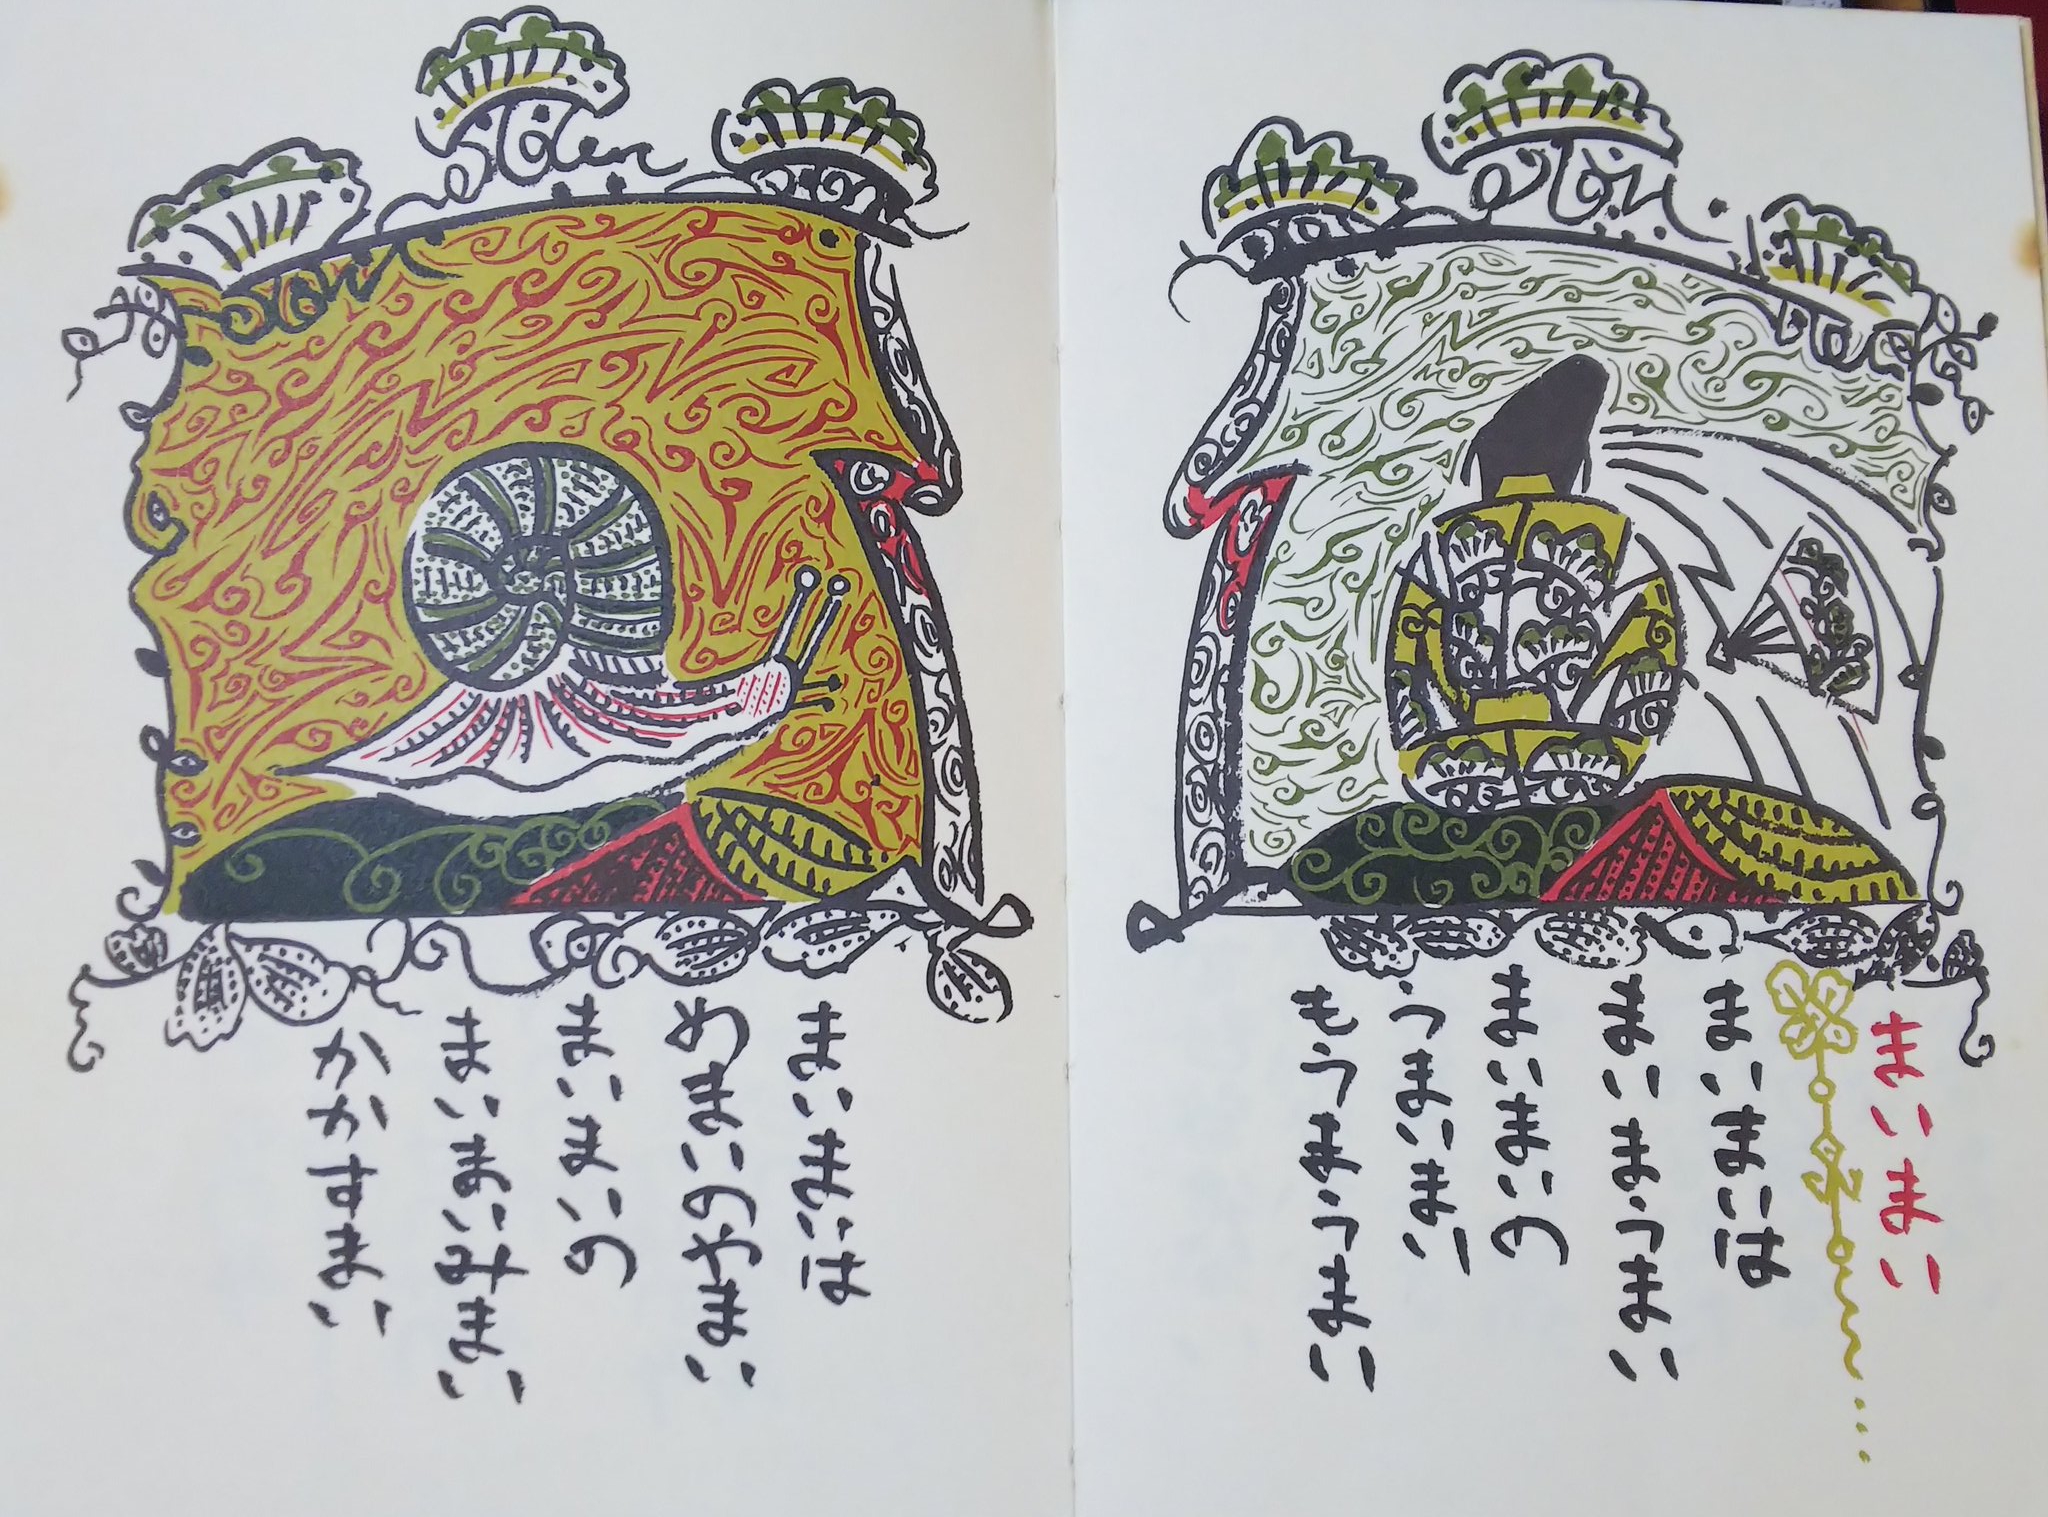 まいまい
まいまいは
まいまうまい
まいまいの
うまいまい
もうまうまい
まいまいは
めまいのやまい
まいまいの
まいまいみまい
かかすまい